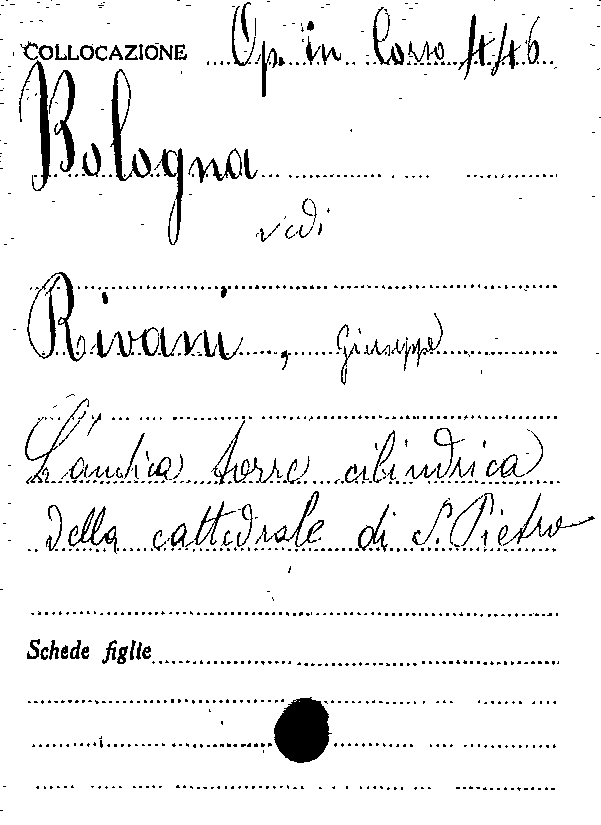 COLLOCAZIONE Op. in Corso 446
Bologna
vedi
Rivani, Giuseppe
L'antica torre cilindrica
della cattedrale di S. Pietro
Schede figlie